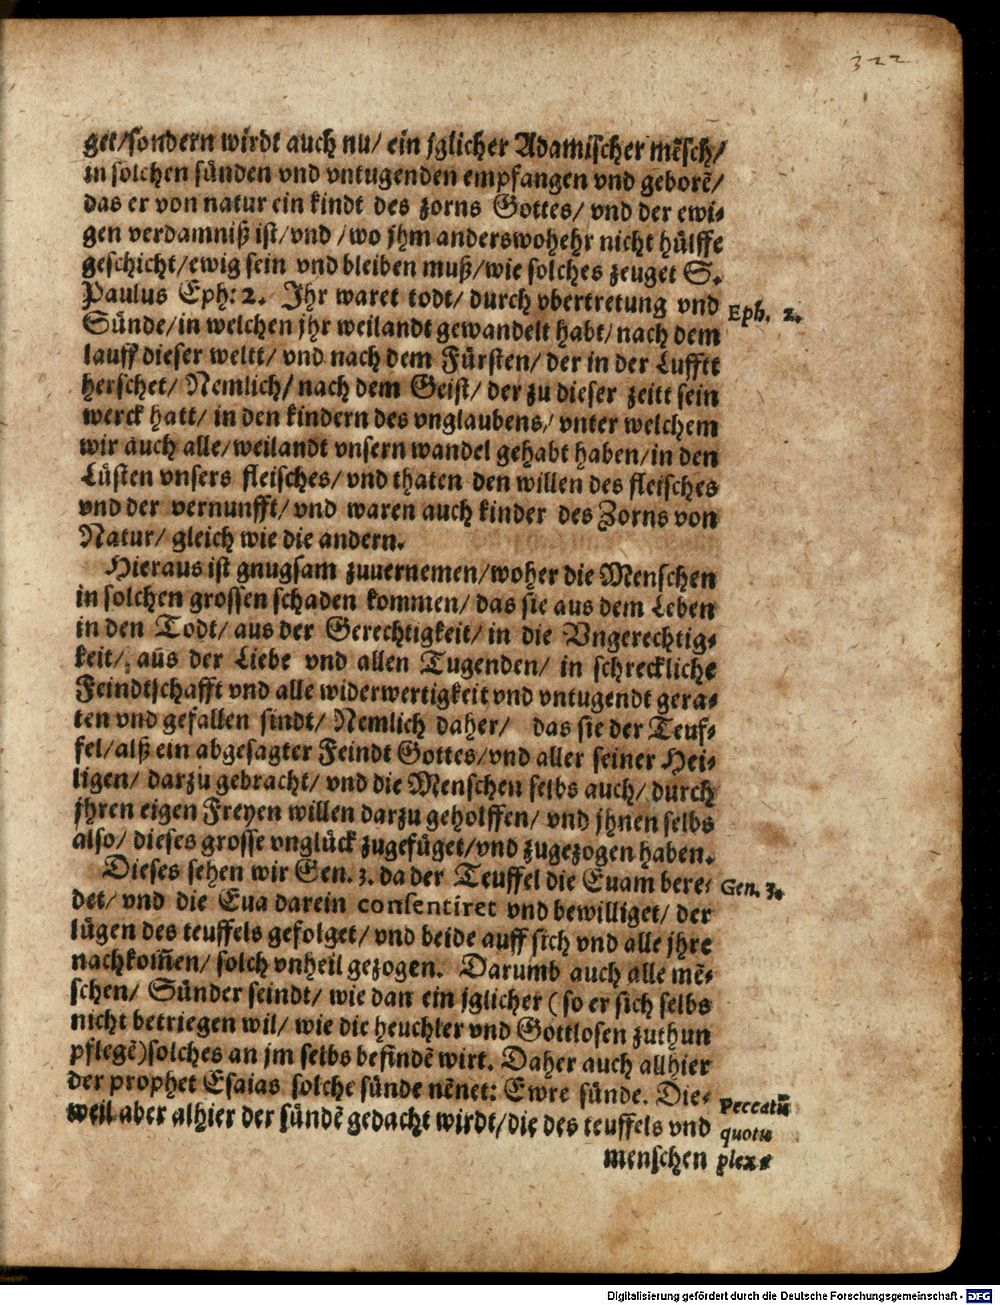 322
get/sondern wirdt auch nu/ ein jglicher Adamischer mẽsch/
in solchen sünden vnd vntugenden empfangen vnd geborẽ/
das er von natur ein kindt des zorns Gottes/ vnd der ewi-
gen verdamniß ist/vnd /wo jhm anderswohehr nicht hülffe
geschicht/ewig sein vnd bleiben muß/wie solches zeuget S.
Paulus Eph: 2. Ihr waret todt/ durch vbertretung vnd
Eph. 2.
Sünde/in welchen jhr weilandt gewandelt habt/ nach dem
lauff dieser weltt/ vnd nach dem Fürsten/ der in der Lufftt
herschet/ Nemlich/ nach dem Geist/ der zu dieser zeitt sein
werck hatt/ in den kindern des vnglaubens/ vnter welchem
wir auch alle/weilandt vnsern wandel gehabt haben/in den
Lüsten vnsers fleisches/ vnd thaten den willen des fleisches
vnd der vernunfft/ vnd waren auch kinder des Zorns von
Natur/ gleich wie die andern.
Hieraus ist gnugsam zuuernemen/woher die Menschen
in solchen grossen schaden kommen/ das sie aus dem Leben
in den Todt/ aus der Gerechtigkeit/ in die Vngerechtig-
keit/, aus der Liebe vnd allen Tugenden/ in schreckliche
Feindtschafft vnd alle widerwertigkeit vnd vntugendt gera-
ten vnd gefallen sindt/ Nemlich daher/ das sie der Teuf-
fel/alß ein abgesagter Feindt Gottes/vnd aller seiner Hei-
ligen/ darzu gebracht/ vnd die Menschen selbs auch/ durch
jhren eigen Freyen willen darzu geholffen/ vnd jhnen selbs
also/ dieses grosse vnglück zugefüget/vnd zugezogen haben.
Dieses sehen wir Gen. 3. da der Teuffel die Euam bere-
Gen. 3.
det/ vnd die Eua darein consentiret vnd bewilliget/ der
lügen des teuffels gefolget/ vnd beide auff sich vnd alle jhre
nachkom̃en/ solch vnheil gezogen. Darumb auch alle mẽ-
schen/ Sünder seindt/ wie dan ein jglicher (so er sich selbs
nicht betriegen wil/ wie die heuchler vnd Gottlosen zuthun
pflegẽ)solches an jm selbs befindẽ wirt. Daher auch allhier
der prophet Esaias solche sünde nẽnet: Ewre sünde. Die-
weil aber alhier der sündẽ gedacht wirdt/die des teuffels vnd
Peccatũ
quotu
plex.
menschen
Digitalisierung gefördert durch die Deutsche Forschungsgemeinschaft - DFG